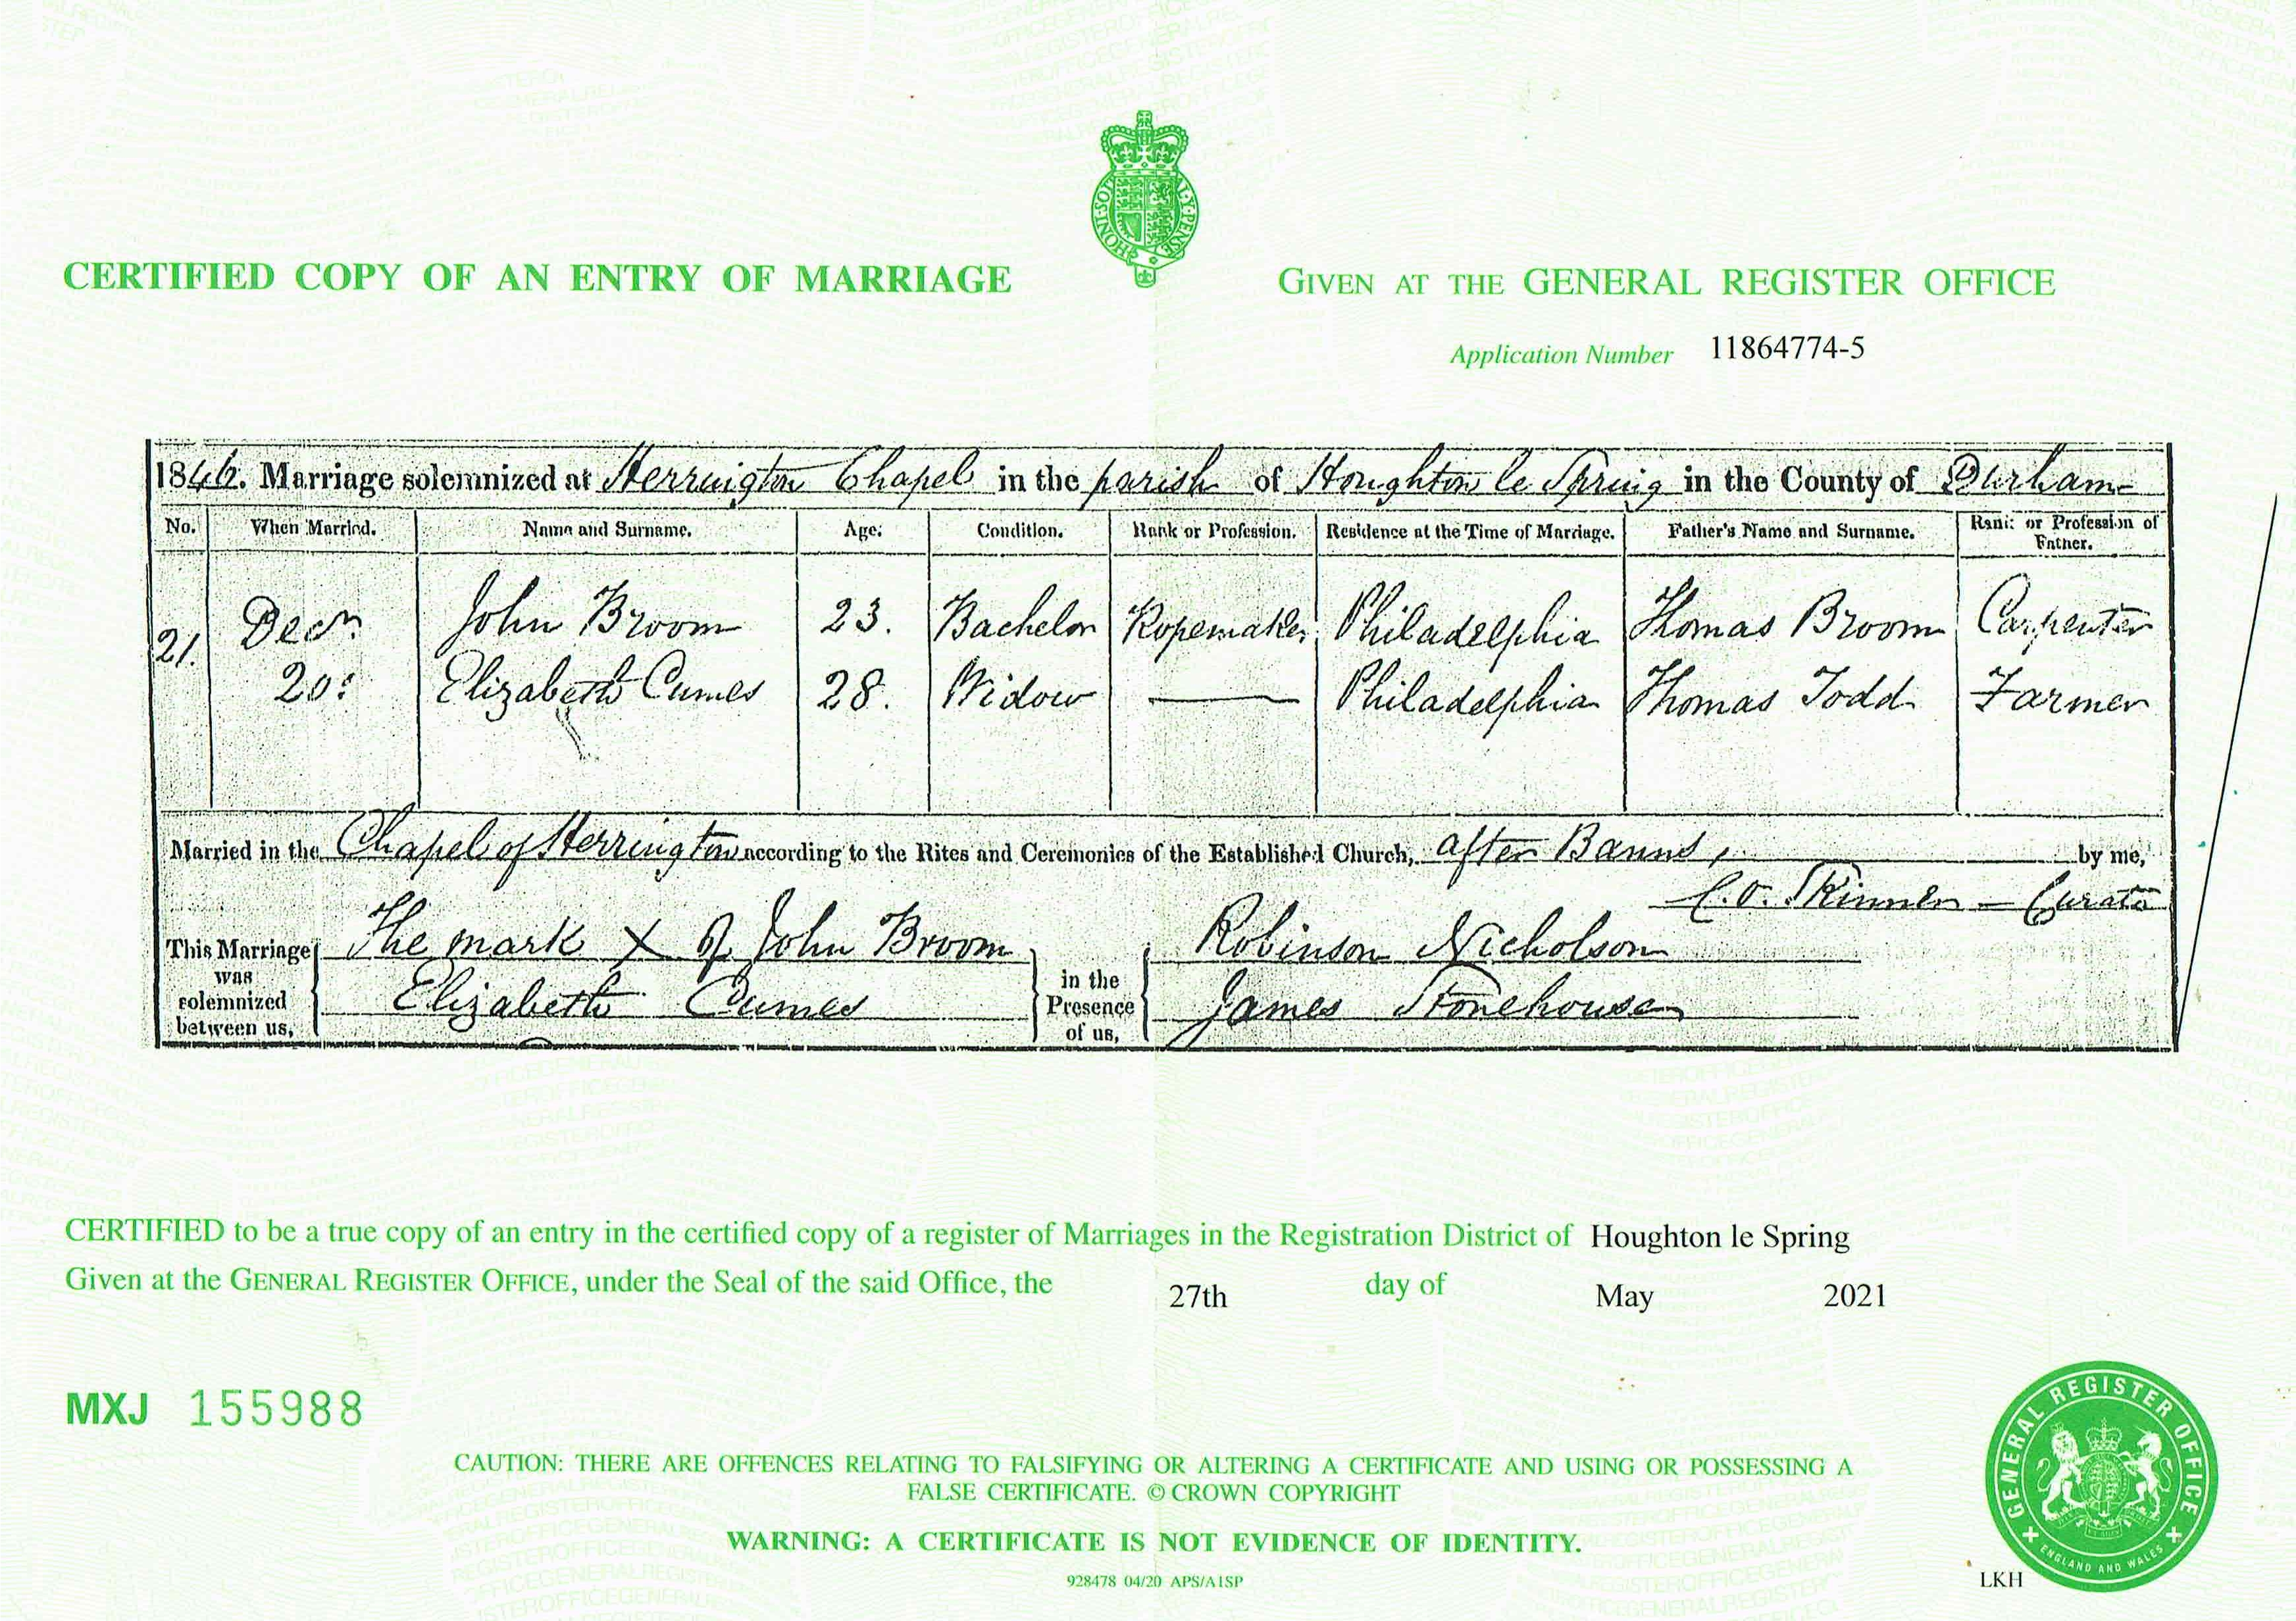 HONI·SOI AL·Y·PENSE
CERTIFIED COPY OF AN ENTRY OF MARRIAGE
GIVEN AT THE GENERAL REGISTER OFFICE
Application Number 11864774-5
1846. Marriage solemnized at Herrington Chapel in the parish of Houghton le Spring in the County of Durham
No. When Married. Name and Surname. Age. Condition. Rank or Profession. Residence at the Time of Marriage. Father's Name and Surname. Rank or Profession of Father.
21. Decr. John Broom 23. Bachelor Ropemaker Philadelphia Thomas Broom Carpenter
20: Elizabeth Cumes 28. Widow — Philadelphia Thomas Todd Farmer
Married in the Chapel of Herrington according to the Rites and Ceremonies of the Established Church, after Banns, by me,
C.O. Skinner – Curate
This Marriage was solemnized between us, The mark X of John Broom in the Presence of us, Robinson Nicholson
Elizabeth Cumes James Stonehouse
CERTIFIED to be a true copy of an entry in the certified copy of a register of Marriages in the Registration District of Houghton le Spring
Given at the GENERAL REGISTER OFFICE, under the Seal of the said Office, the 27th day of May 2021
MXJ 155988
CAUTION: THERE ARE OFFENCES RELATING TO FALSIFYING OR ALTERING A CERTIFICATE AND USING OR POSSESSING A
FALSE CERTIFICATE. © CROWN COPYRIGHT
WARNING: A CERTIFICATE IS NOT EVIDENCE OF IDENTITY.
928478 04/20 APS/A1SP
LKH
GENERAL REGISTER OFFICE
ENGLAND AND WALES